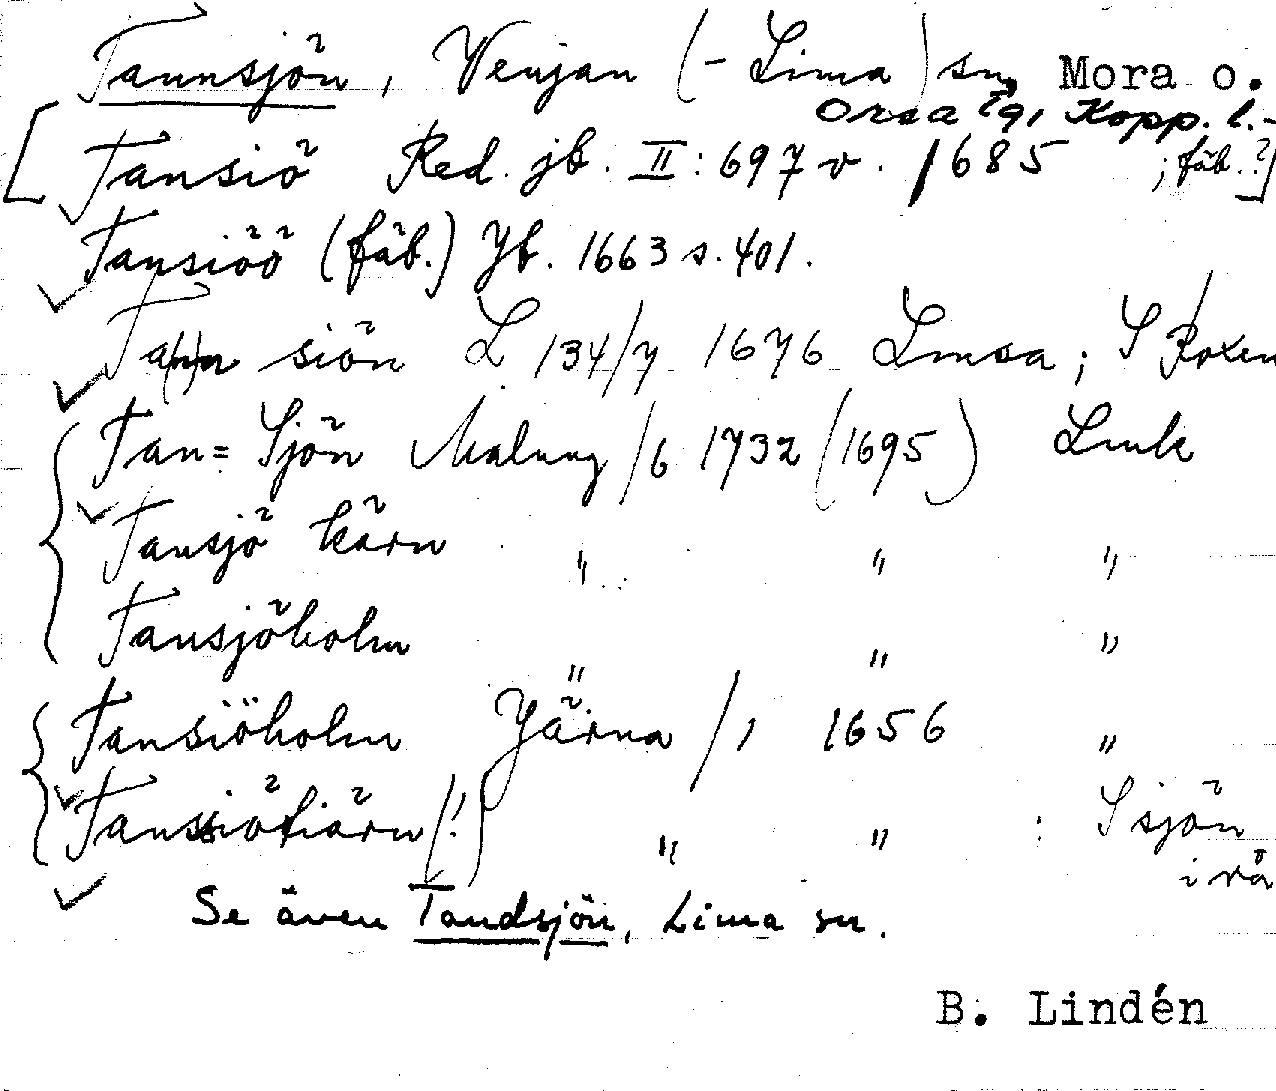 Tannsjön, Venjan (- Lima) sn, Mora o.
Orsa tg, Kopp. l.-
[Tansiö Red. jb. II: 697 v. 1685 ; fäb.?]
Tansiöö (fäb.) Jb. 1663 s. 401.
Ta(n)n siön L 134/7 1676 Lmsa; S Roxen
Tan= Sjön Malung/6 1732 (1695) Lmk
Tansjö kärn " " "
Tansjöholm " " "
Tansiöholm Järna/1 1656 "
Tansiötiärn (!) " " : S sjön
i rå
Se även Tandsjön, Lima sn.
B. Lindén